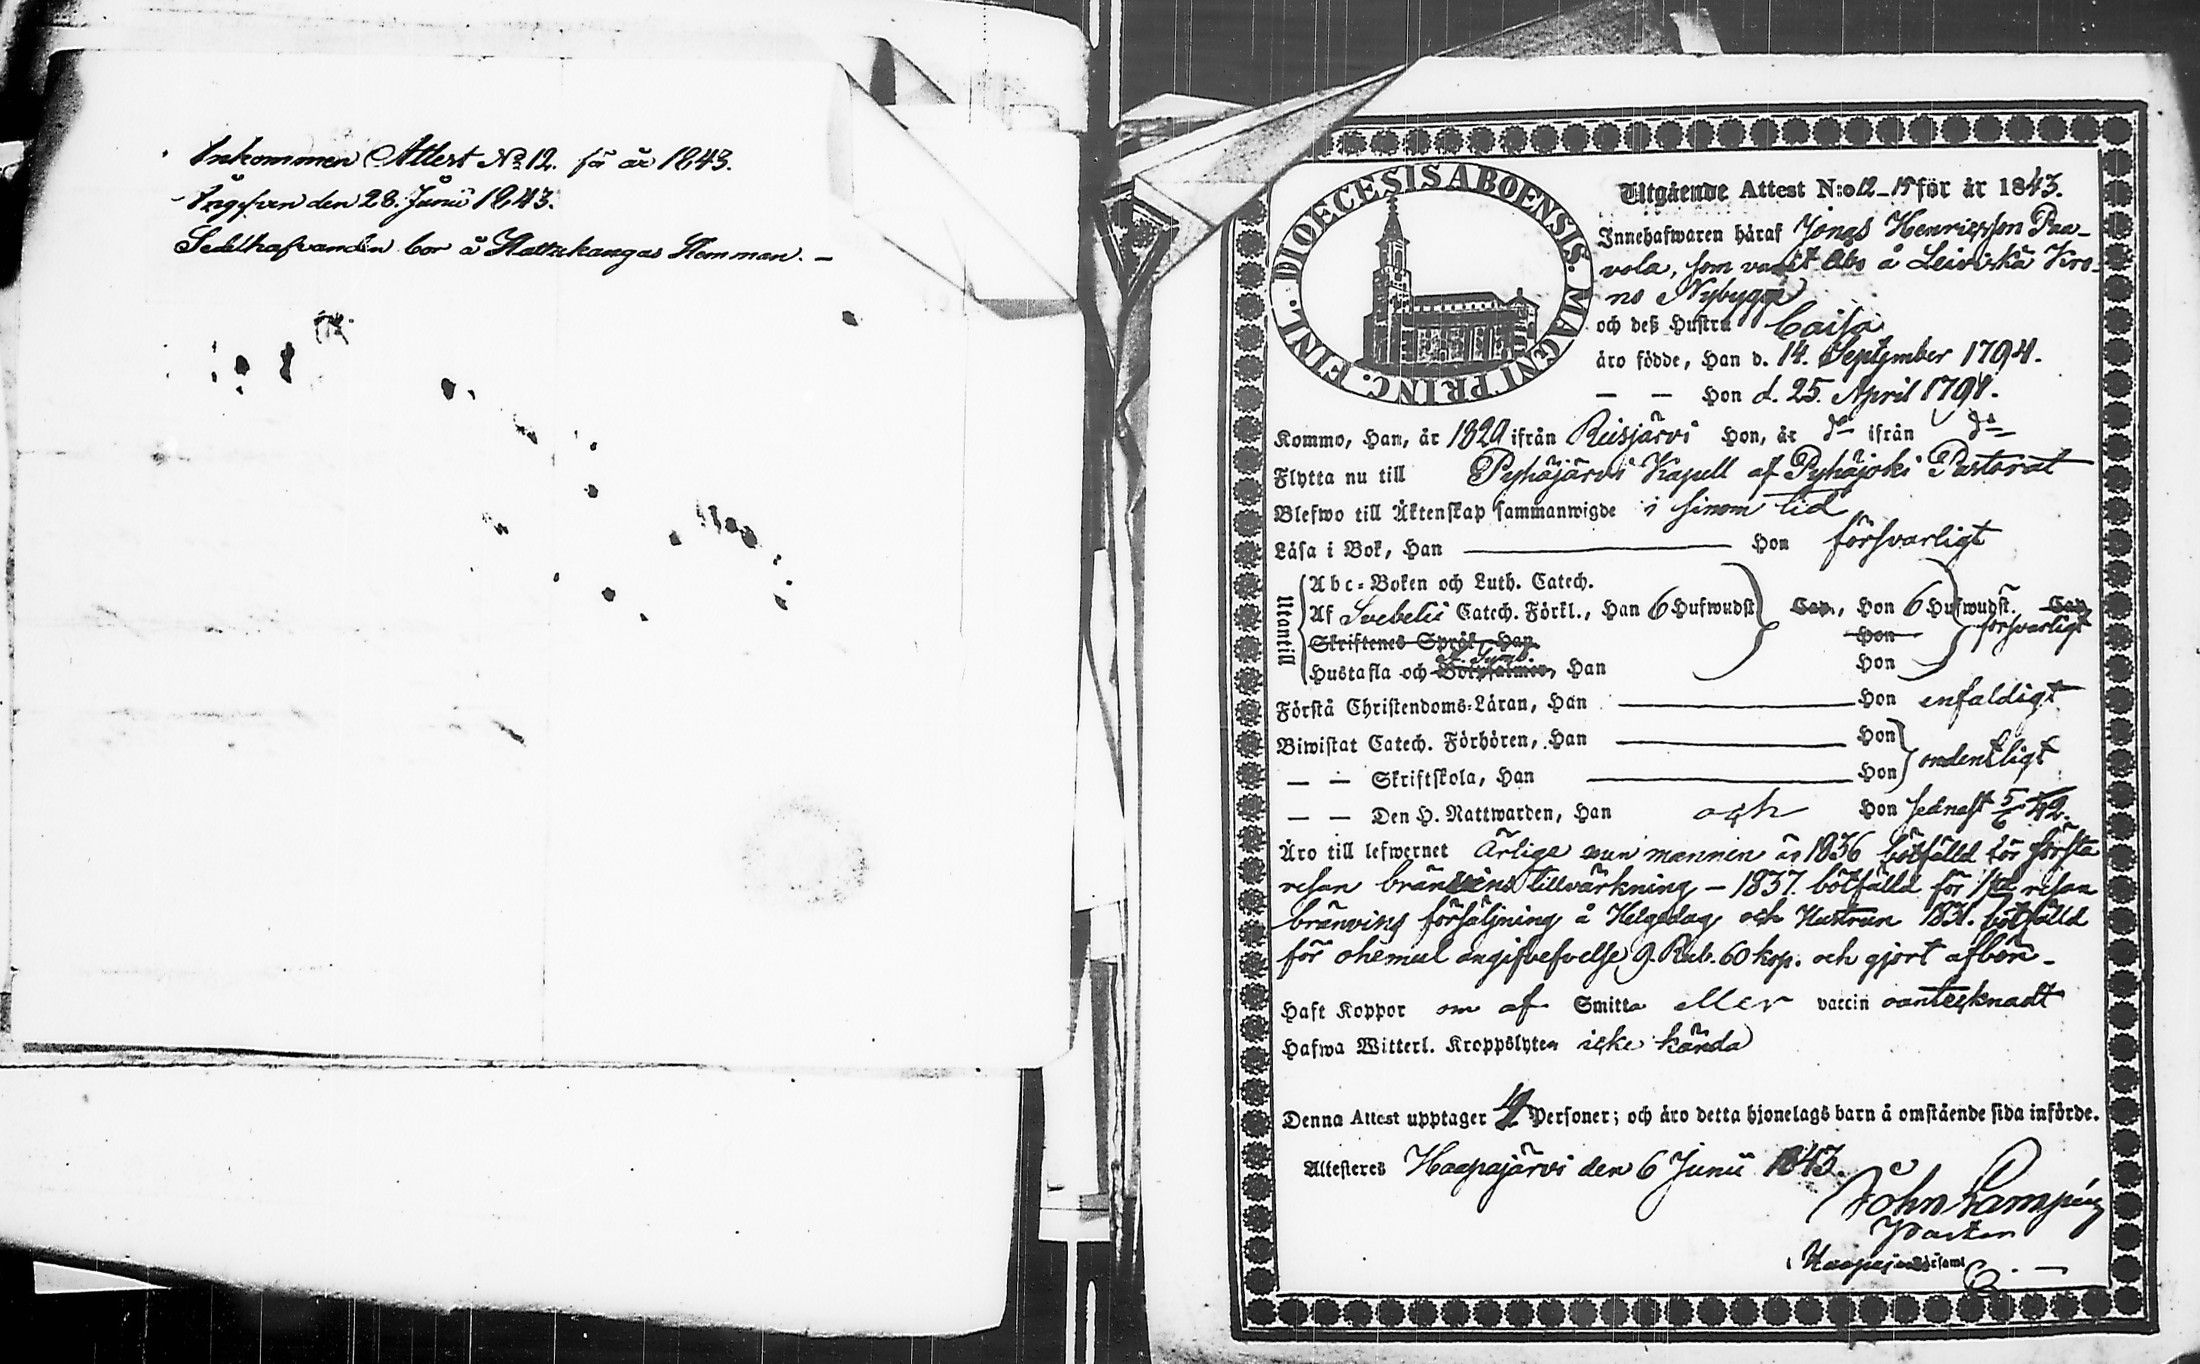 Inkommen Attest No 12. fö år 1843.
Ingifven den 28. Junii 1843.
Sedelhafvanden bor å Hattukangas Hemman. –
DIOECESIS ABOENSIS. MAGNI PRINC. FINL.
Utgående Attest N:o 12–15 för år 1843.
Innehafwaren häraf Jonas Henricsson Paa-
vola, som varit Åbo å Leiviskä Kro-
no Nybygge
och deß Hustru Caisa
äro födde, Han d. 14. September 1794.
— — Hon d. 25. April 1791.
Kommo, Han, år 1829 ifrån Reisjärvi Hon, år do ifrån do
Flytta nu till Pyhäjärvi Kapell af Pyhäjoki Pastorat
Blefwo till Äktenskap sammanwigde i sinom tid
Läsa i Bok, Han — Hon försvarligt
Utantill
Abc-Boken och Luth. Catech.
Af Svebelii Catech. Förkl., Han 6 Hufwudst. Cap., Hon 6 Hufwudst. Cap.
försvarligt
Skriftenes Språk, Han Hon
Hustafla och Botpsalmer, Han Hon
Förstå Christendoms-Läran, Han — Hon enfaldigt
Biwistat Catech. Förhören, Han — Hon ordentligt
— — Skriftskola, Han — Hon
— — Den H. Nattwarden, Han och Hon sednast 5/6 42.
Äro till lefwernet Ärliga men mannen år 1836 bötfälld för första
resan bränvins tillvärkning – 1837. bötfälld för 1sta resan
bränvins försäljning å Helgedag och Hustrun 1831. bötfälld
för ohemul angifvelse 9. Rub. 60 kop. och gjort afbön. –
Haft Koppor om af Smitta eller vaccin oantecknadt
Hafwa Witterl. Kroppslyten icke kända
Denna Attest upptager 4 Personer; och äro detta hjonelags barn å omstående sida införde.
Attesteres Haapajärvi den 6 Junii 1843.
Joh Lampén
Pastor